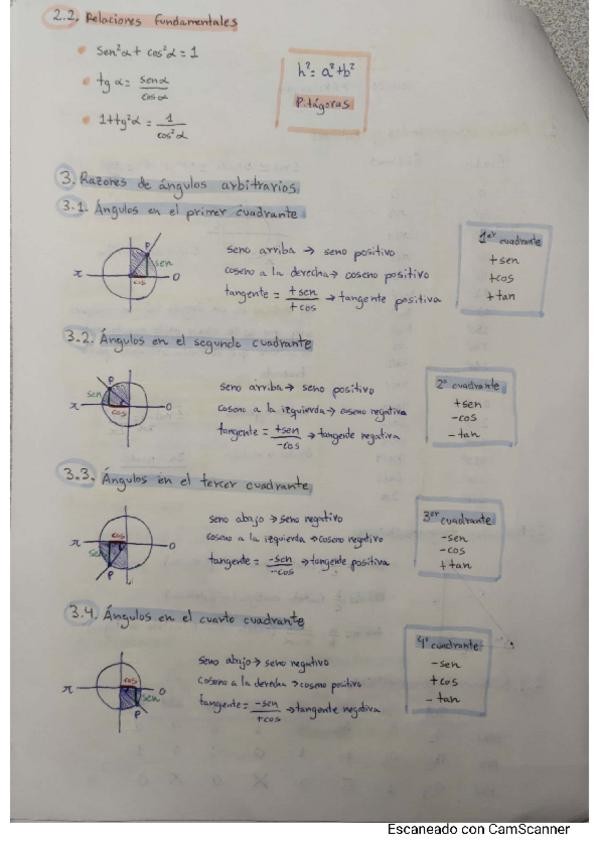 2.2. Relaciones fundamentales
• sen²α + cos²α = 1
• tg α = senα / cosα
• 1+tg²α = 1 / cos²α
h² = a² + b²
Pitágoras
3. Razones de ángulos arbitrarios
3.1. Ángulos en el primer cuadrante
P
sen
cos
π
0
seno arriba → seno positivo
coseno a la derecha → coseno positivo
tangente = +sen / +cos → tangente positiva
1er cuadrante
+sen
+cos
+tan
3.2. Ángulos en el segundo cuadrante
P
sen
cos
π
0
seno arriba → seno positivo
coseno a la izquierda → coseno negativo
tangente = +sen / -cos → tangente negativa
2º cuadrante
+sen
-cos
-tan
3.3. Ángulos en el tercer cuadrante
cos
π
0
sen
P
seno abajo → seno negativo
coseno a la izquierda → coseno negativo
tangente = -sen / -cos → tangente positiva
3er cuadrante
-sen
-cos
+tan
3.4. Ángulos en el cuarto cuadrante
cos
π
0
sen
P
seno abajo → seno negativo
coseno a la derecha → coseno positivo
tangente = -sen / +cos → tangente negativa
4º cuadrante
-sen
+cos
-tan
Escaneado con CamScanner